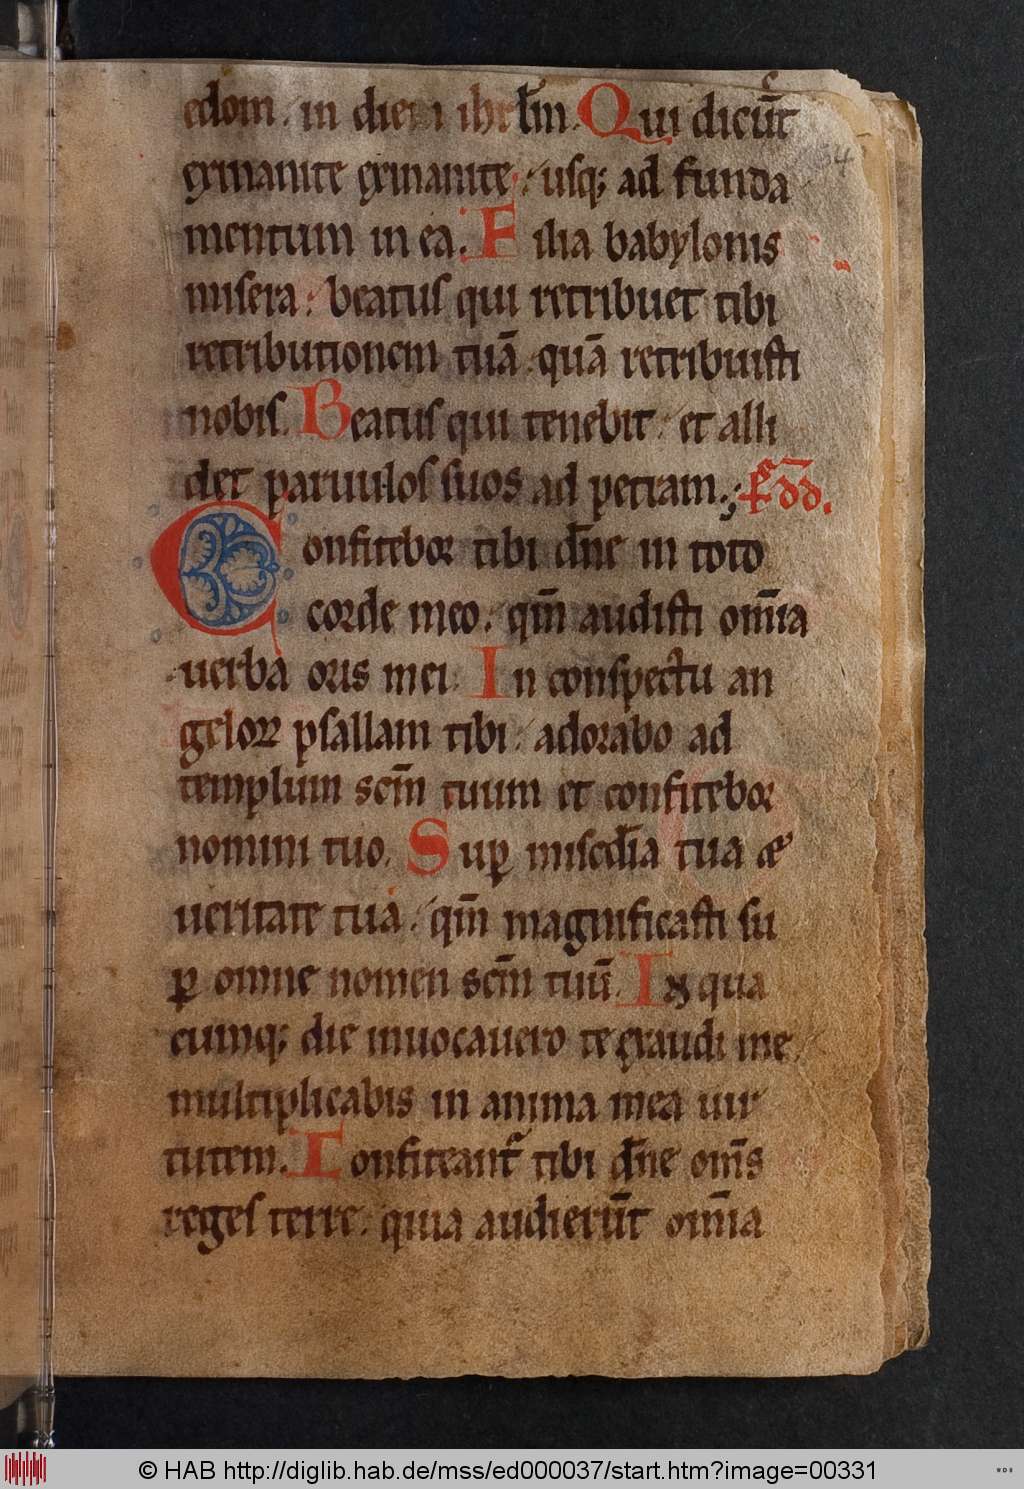 edom. in diem ihrłm. Qui dicūt
exinanite exinanite: usq; ad funda
mentum in ea. Filia babylonis
misera: beatus qui retribuet tibi
retributionem tuā quā retribuisti
nobis. Beatus qui tenebit: et alli
det paruulos suos ad petram.;
Confitebor tibi dn̄e in toto
corde meo. qm̄ audisti om̄ia
uerba oris mei. In conspectu an
geloꝝ psallam tibi: adorabo ad
templum scm̄ tuum et confitebor
nomini tuo. Suꝑ misc̄dia tua &
ueritate tua: qm̄ magnificasti su
ꝑ omne nomen scm̄ tuū. In qua
cumq; die inuocauero te exaudi me.
multiplicabis in anima mea uir
tutem. Confiteant᷑ tibi dn̄e om̄s
reges terre. quia audierūt om̄ia
54
© HAB http://diglib.hab.de/mss/ed000037/start.htm?image=00331